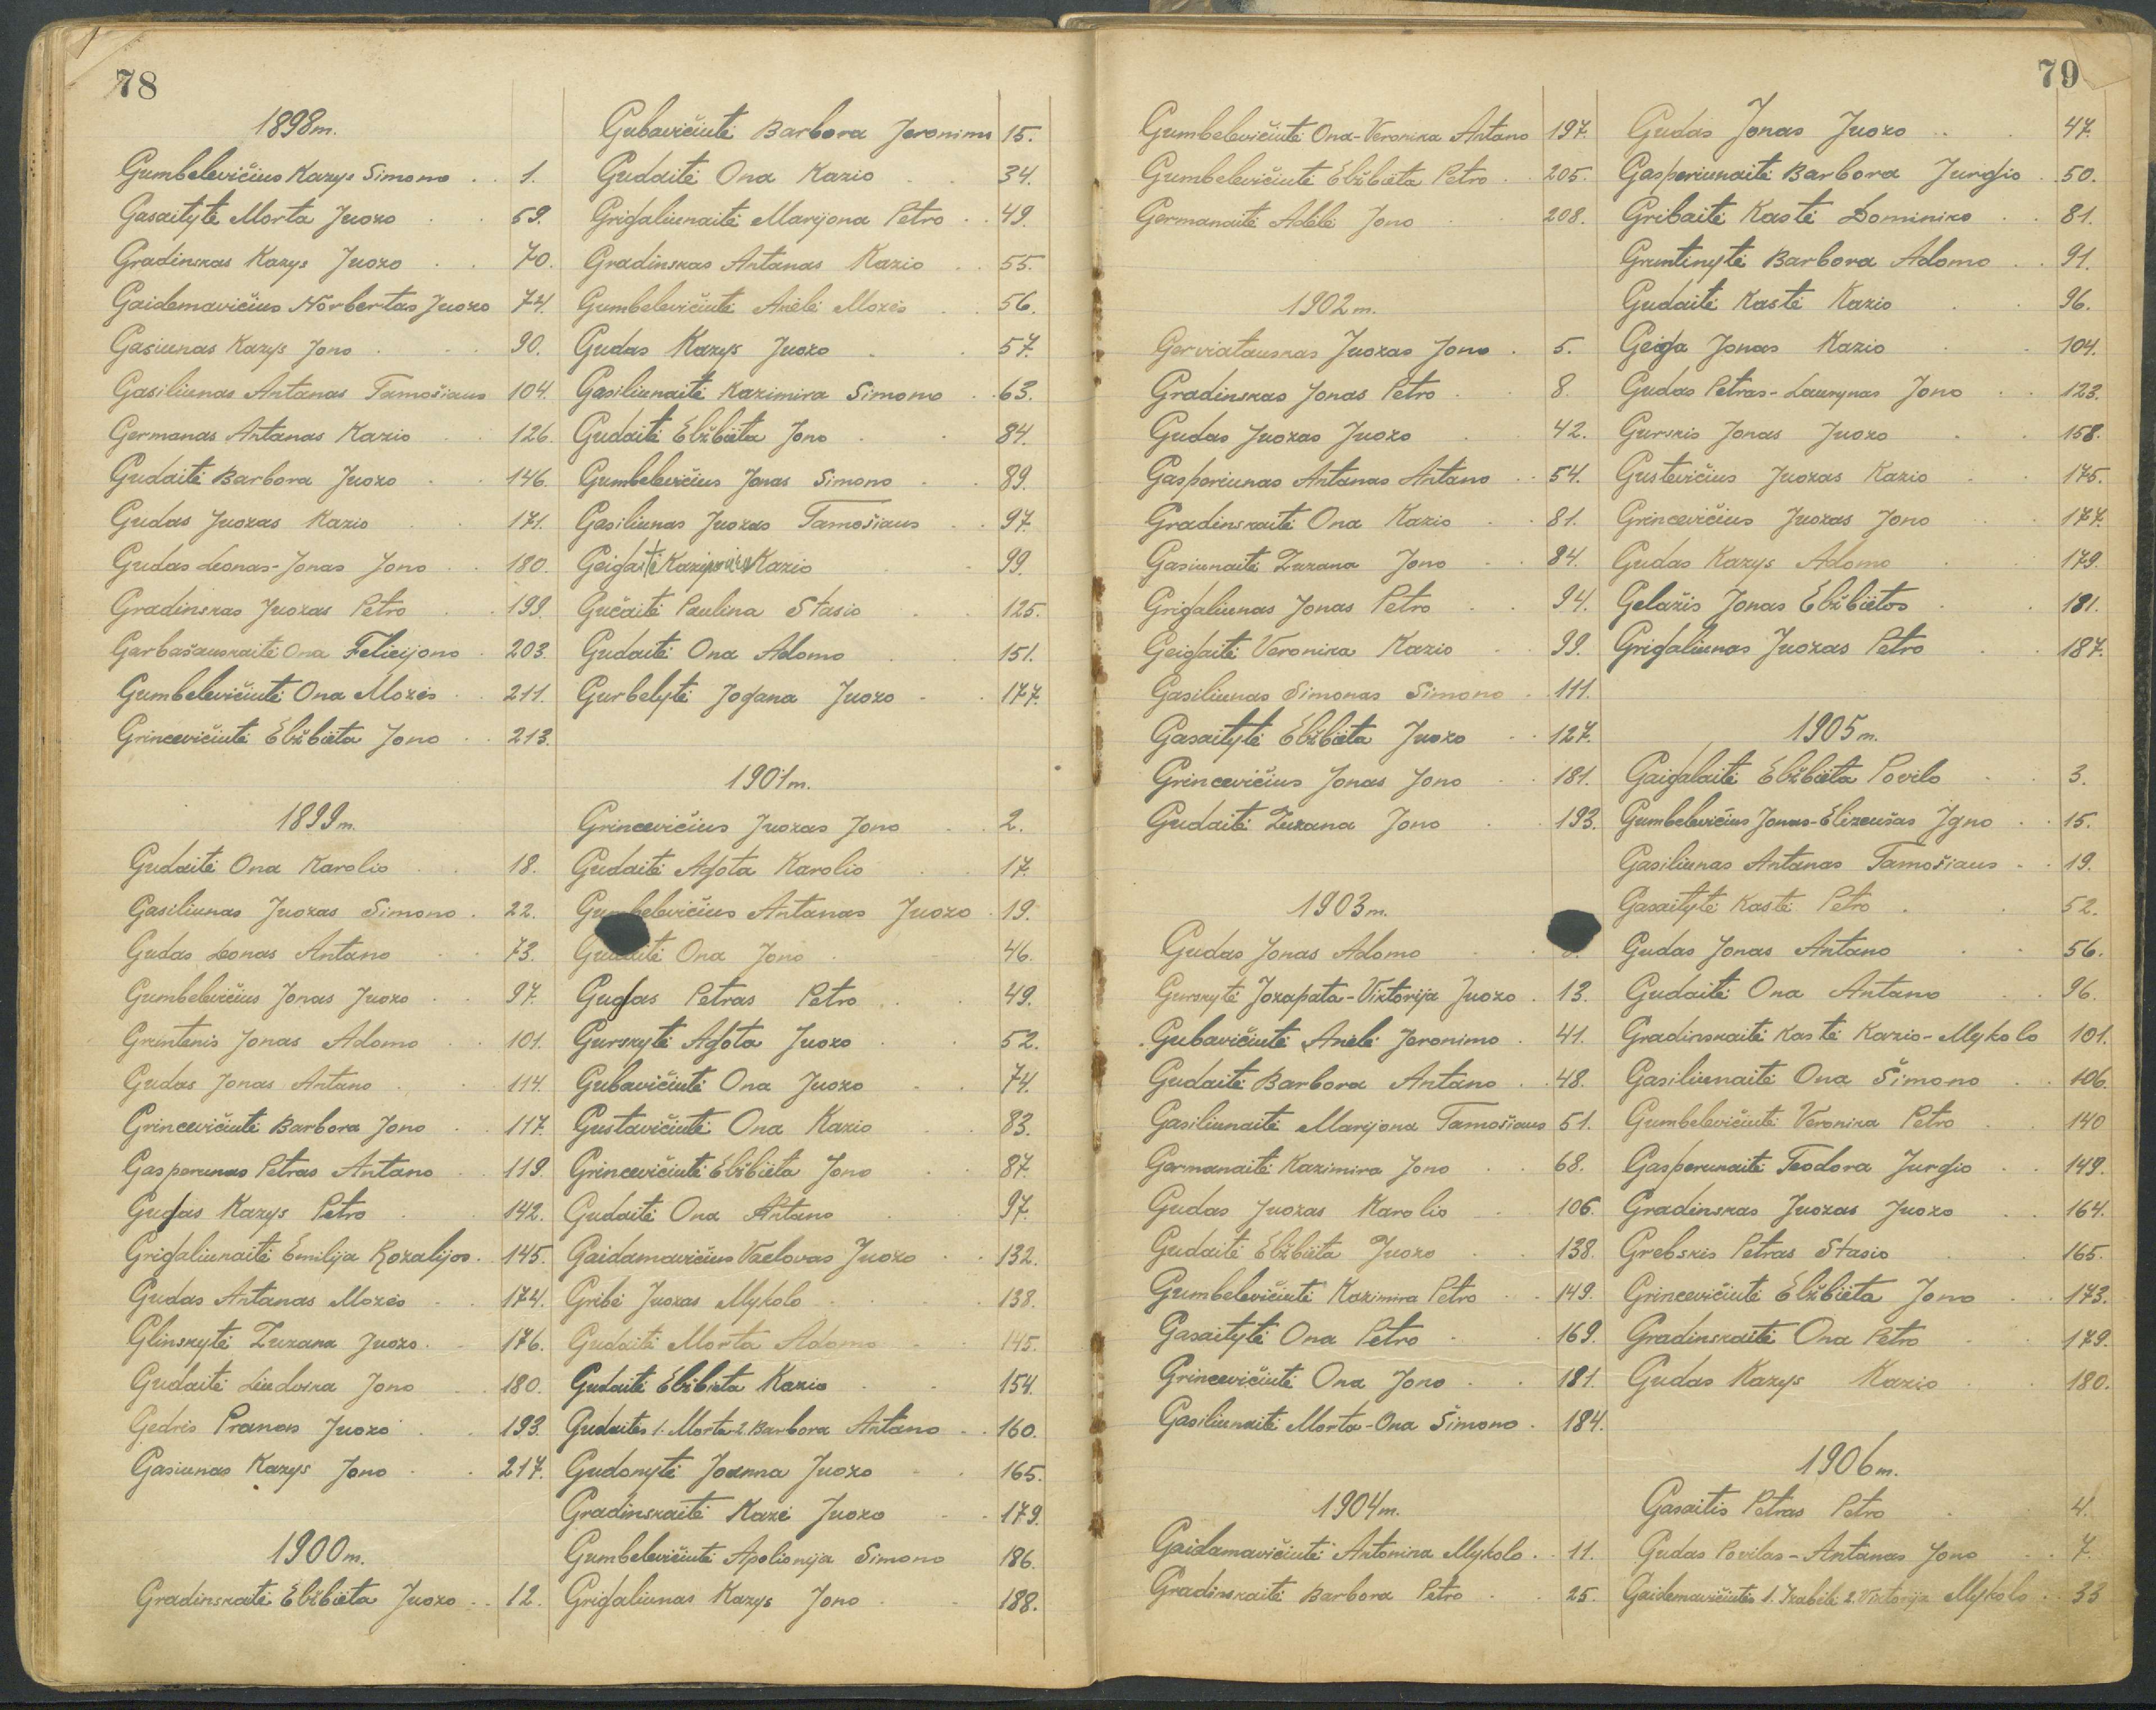 78
1898m.
Gumbelevičius Kazys Simono . . 1.
Gasaitytė Morta Juozo . . 59.
Gradinskas Kazys Juozo . . 70.
Gaidemavičius Norbertas Juozo 74.
Gasiunas Kazys Jono . . . 90.
Gasiliunas Antanas Tamošiaus 104.
Germanas Antanas Kazio . . 126.
Gudaitė Barbora Juozo . . 146.
Gudas Juozas Kazio . . 171.
Gudas Leonas-Jonas Jono . . 180.
Gradinskas Juozas Petro . . 199.
Garbašauskaitė Ona Felicijono . 203.
Gumbelevičiutė Ona Mozės . . 211.
Grincevičiutė Elžbieta Jono . . 213.
1899m.
Gudaitė Ona Karolio . . 18.
Gasiliunas Juozas Simono . 22.
Gudas Leonas Antano . . 73.
Gumbelevičius Jonas Juozo . . 97.
Grintenis Jonas Adomo . . 101.
Gudas Jonas Antano . . 114.
Grincevičiutė Barbora Jono . . 117.
Gasperunas Petras Antano . . 119.
Gugas Kazys Petro . . 142.
Grigaliunaitė Emilija Rozalijos . 145.
Gudas Antanas Mozės . . 174.
Glinskytė Zuzana Juozo . . 176.
Gudaitė Liudvika Jono . . 180.
Gedris Pranas Juozo . . 193.
Gasiunas Kazys Jono . . 217.
1900m.
Gradinskaitė Elžbieta Juozo . . 12.
Gubavičiutė Barbora Jeronimo 15.
Gudaitė Ona Kazio . 34.
Grigaliunaitė Marijona Petro . . 49.
Gradinskas Antanas Kazio . . 55.
Gumbelevičiutė Anėlė Mozės . . 56.
Gudas Kazys Juozo . . 57.
Gasiliunaitė Kazimira Simono . . 63.
Gudaitė Elžbieta Jono . . 84.
Gumbelevičius Jonas Simono . . 89.
Gasiliunas Juozas Tamošiaus . . 97.
Geigaitė Kazio . . 99.
Gučaitė Paulina Stasio . . 125.
Gudaitė Ona Adomo . . 151.
Gurbelytė Jogana Juozo . . 177.
1901m.
Grincevičius Juozas Jono . . 2.
Gudaitė Agota Karolio . . 17.
Gumbelevičius Antanas Juozo . 19.
Gudaitė Ona Jono . . 46.
Gugas Petras Petro . . 49.
Gurskytė Agota Juozo . . 52.
Gubavičiutė Ona Juozo . . 74.
Gustavičiutė Ona Kazio . . 83.
Grincevičiutė Elžbieta Jono . . 87.
Gudaitė Ona Antano . . 97.
Gaidamavičius Vaclovas Juozo . . 132.
Gribė Juozas Mykolo . . 138.
Gudaitė Morta Adomo . . 145.
Gudaitė Elžbieta Kazio . . 154.
Gudaitės 1. Morta 2. Barbora Antano . . 160.
Gudonytė Joanna Juozo . . 165.
Gradinskaitė Kazė Juozo . . 179.
Gumbelevičiutė Apolionija Simono 186.
Grigaliunas Kazys Jono . . 188.
79
Gumbelevičiutė Ona-Veronika Antano 197.
Gumbelevičiutė Elžbieta Petro . . 205.
Germanaitė Adėlė Jono . . 208.
1902m.
Gerviatauskas Juozas Jono . 5.
Gradinskas Jonas Petro . . 8.
Gudas Juozas Juozo . . 42.
Gasperiunas Antanas Antano . . 54.
Gradinskaitė Ona Kazio . . 81.
Gasiunaitė Zuzana Jono . . 84.
Grigaliunas Jonas Petro . . 94.
Geigaitė Veronika Kazio . . 99.
Gasiliunas Simonas Simono . 111.
Gasaitytė Elžbieta Juozo . . 127.
Grincevičius Jonas Jono . . 181.
Gudaitė Zuzana Jono . . 193.
1903m.
Gudas Jonas Adomo . .
Gurskytė Jozapata-Viktorija Juozo . 13.
Gubavičiutė Anėlė Jeronimo . 41.
Gudaitė Barbora Antano . . 48.
Gasiliunaitė Marijona Tamošiaus 51.
Germanaitė Kazimira Jono . . 68.
Gudas Juozas Karolio . . 106.
Gudaitė Elžbieta Juozo . . 138.
Gumbelevičiutė Kazimira Petro . . 149.
Gasaitytė Ona Petro . . 169.
Grincevičiutė Ona Jono . . 181.
Gasiliunaitė Morta-Ona Simono . 184.
1904m.
Gaidamavičiutė Antonina Mykolo . . 11.
Gradinskaitė Barbora Petro . . 25.
Gudas Jonas Juozo . . 47.
Gasperiunaitė Barbora Jurgio . 50.
Gribaitė Kastė Dominiko . . 81.
Gruntinytė Barbora Adomo . . 91.
Gudaitė Kastė Kazio . . 96.
Geiga Jonas Kazio . . 104.
Gudas Petras-Laurynas Jono . . 123.
Gurskis Jonas Juozo . . 158.
Gustevičius Juozas Kazio . . 175.
Grincevičius Juozas Jono . . 177.
Gudas Kazys Adomo . . 179.
Gelažis Jonas Elžbietos . . 181.
Grigaliunas Juozas Petro . . 187.
1905m.
Gaigalaitė Elžbieta Povilo . . 3.
Gumbelevičius Jonas-Elizeušas Igno . . 15.
Gasiliunas Antanas Tamošiaus . . 19.
Gasaitytė Kastė Petro . . 52.
Gudas Jonas Antano . . 56.
Gudaitė Ona Antano . . 96.
Gradinskaitė Kastė Kazio-Mykolo 101.
Gasiliunaitė Ona Simono . . 106.
Gumbelevičiutė Veronika Petro . . 140
Gasperunaitė Teodora Jurgio . . 149.
Gradinskas Juozas Juozo . . 164.
Grebskis Petras Stasio . . 165.
Grincevičiutė Elžbieta Jono . . 173.
Gradinskaitė Ona Petro . . 179.
Gudas Kazys Kazio . . 180.
1906m.
Gasaitis Petras Petro . . 4.
Gudas Povilas-Antanas Jono . . 7.
Gaidemavičiutės 1. Izabelė 2. Viktorija Mykolo . . 33